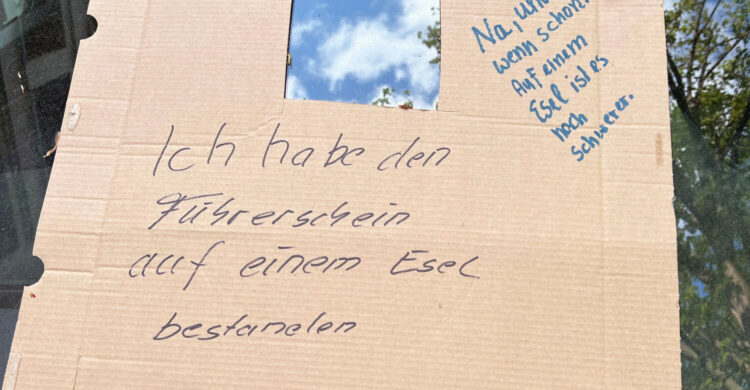 Na, und
wenn schon.
Auf einem
Esel ist es
noch
schwerer.
Ich habe den
Führerschein
auf einem Esel
bestanden